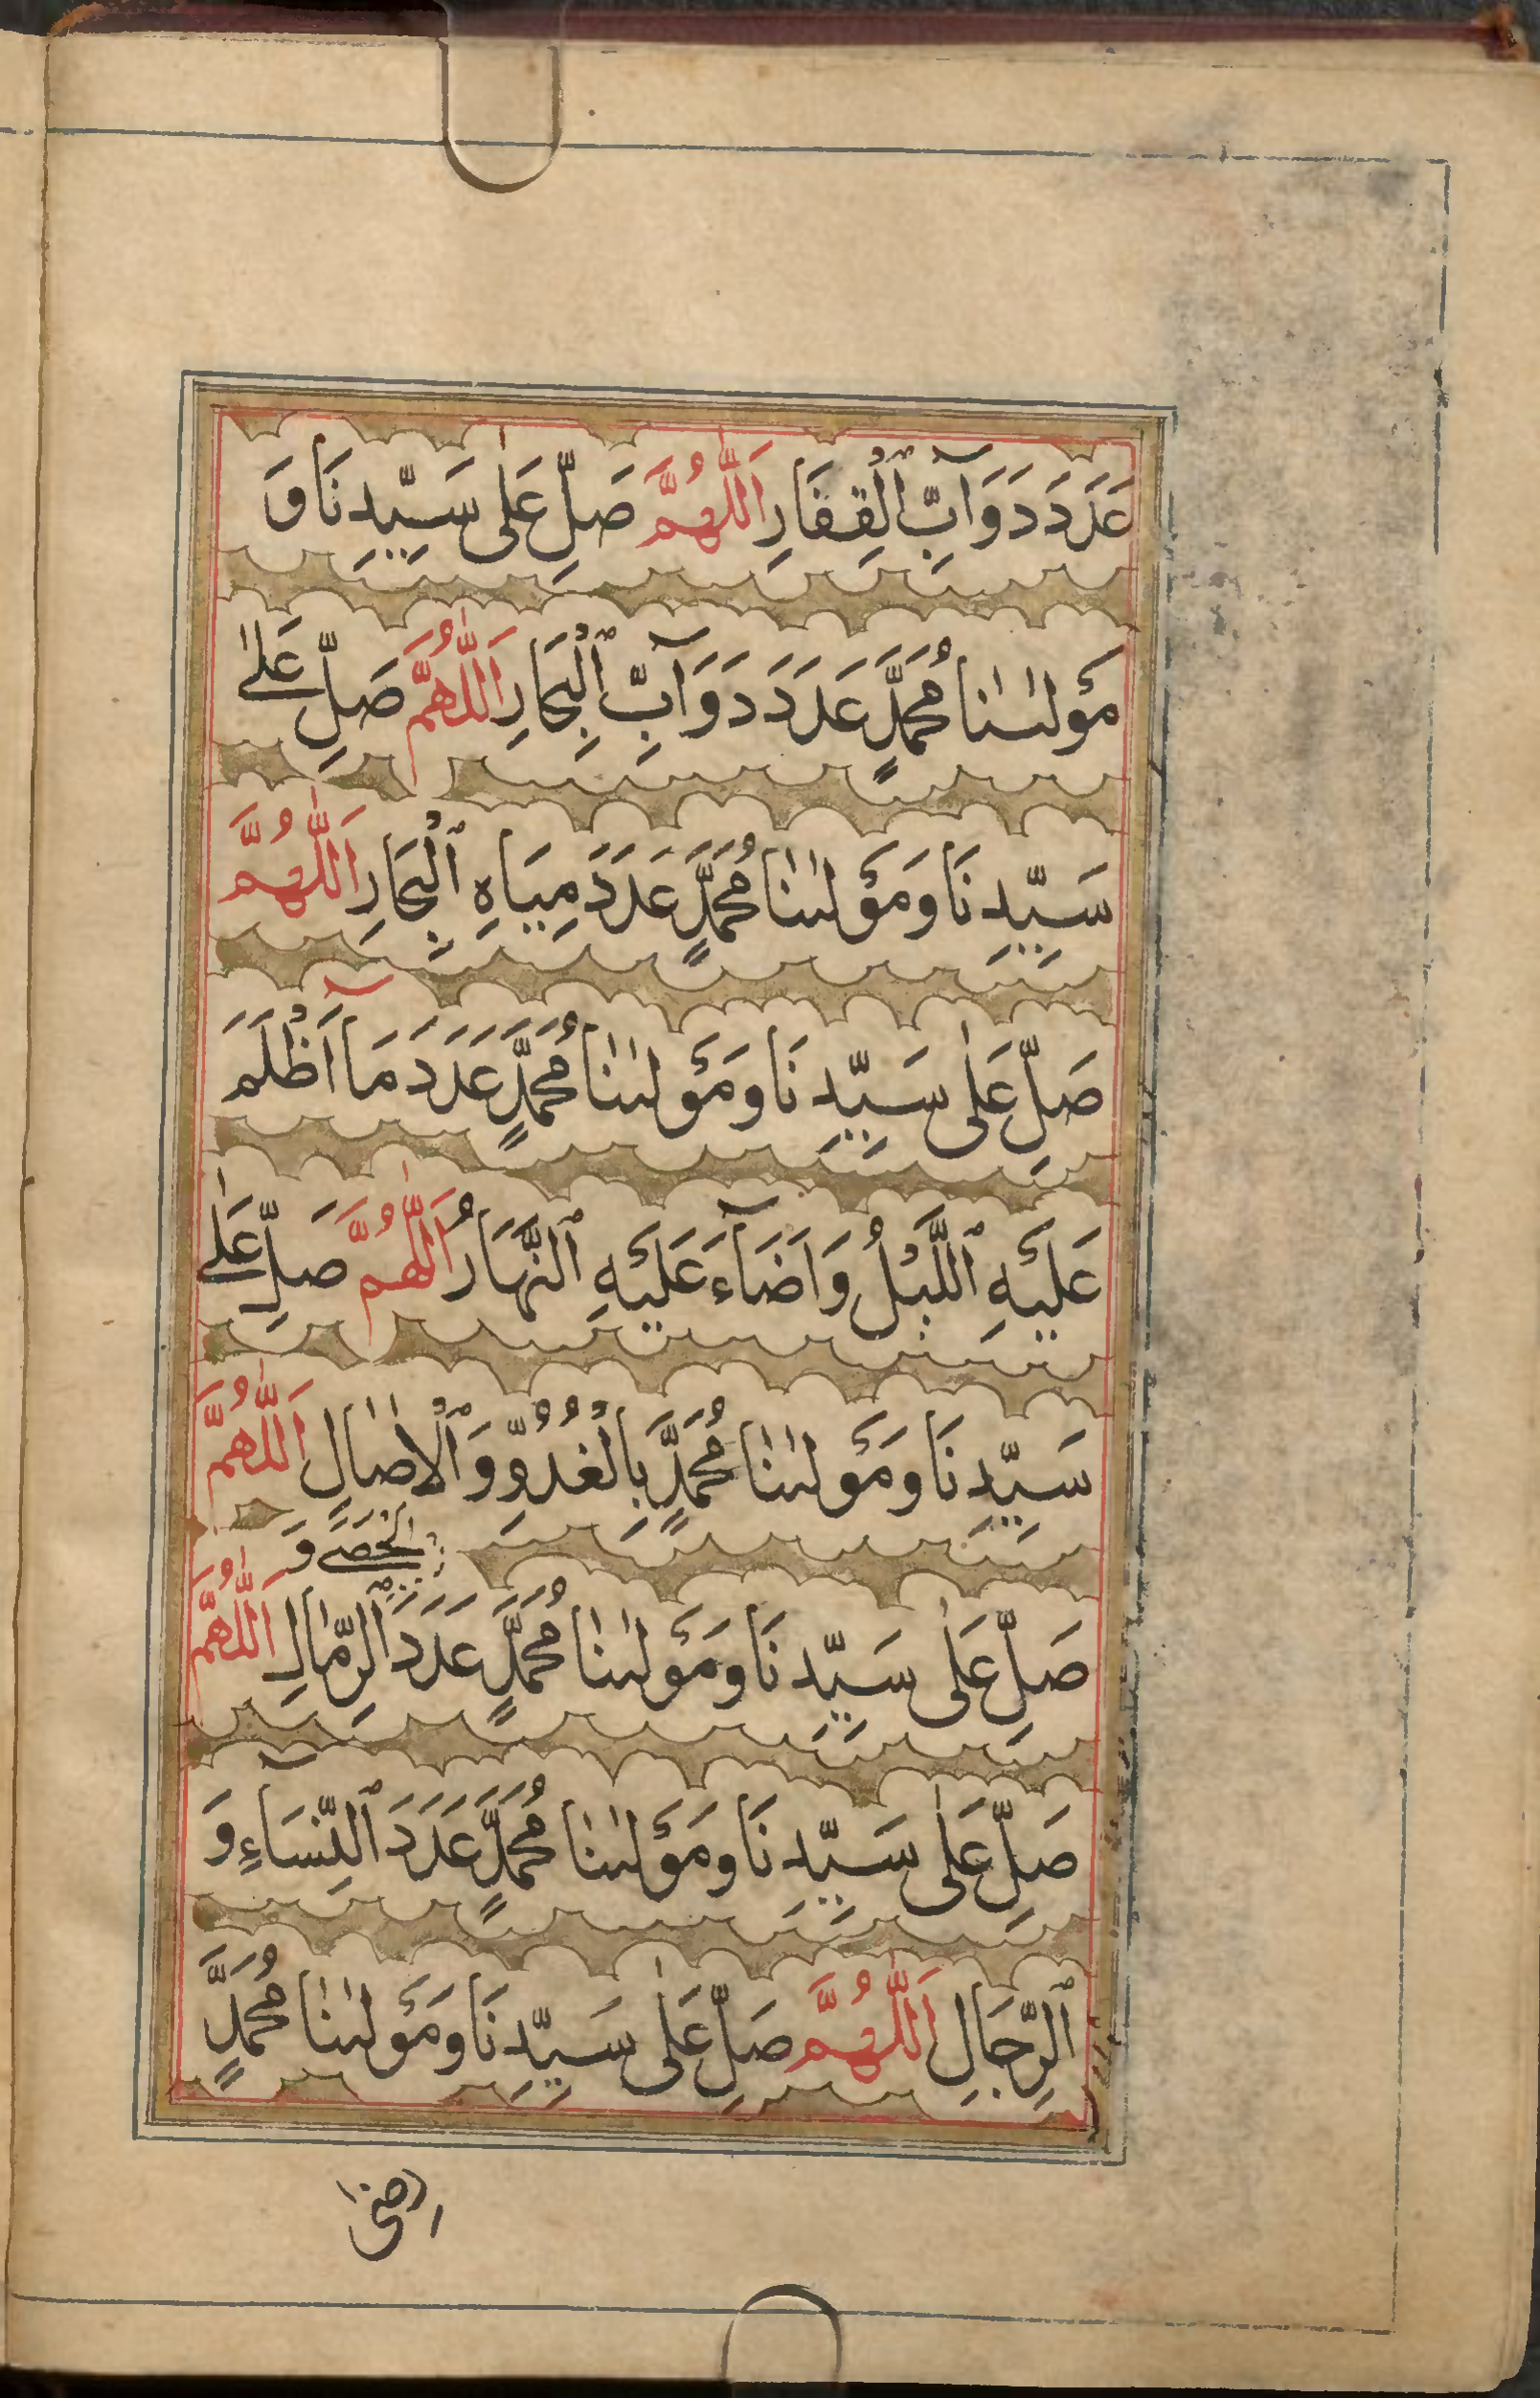 عَدَدَ دَوَآبِّ ٱلْقِفَارِ اَللّٰهُمَّ صَلِّ عَلٰى سَيِّدِنَا وَ
مَوْلٰىنٰا مُحَمَّدٍ عَدَدَ دَوَآبِّ ٱلْبِحَارِ اَللّٰهُمَّ صَلِّ عَلٰى
سَيِّدِنَا وَمَوْلٰىنٰا مُحَمَّدٍ عَدَدَ مِيَاهِ ٱلْبِحَارِ اَللّٰهُمَّ
صَلِّ عَلٰى سَيِّدِنَا وَمَوْلٰىنٰا مُحَمَّدٍ عَدَدَ مَآ اَظْلَمَ
عَلَيْهِ ٱللَّيْلُ وَاَضَآءَ عَلَيْهِ ٱلنَّهَارُ اَللّٰهُمَّ صَلِّ عَلٰى
سَيِّدِنَا وَمَوْلٰىنٰا مُحَمَّدٍ بِالْغُدُوِّ وَٱلْاٰصٰالِ اَللّٰهُمَّ
الْحَصٰى وَ
صَلِّ عَلٰى سَيِّدِنَا وَمَوْلٰىنٰا مُحَمَّدٍ عَدَدَ ٱلرِّمٰالِ اَللّٰهُمَّ
صَلِّ عَلٰى سَيِّدِنَا وَمَوْلٰىنٰا مُحَمَّدٍ عَدَدَ ٱلنِّسَآءِ وَ
ٱلرِّجَالِ اَللّٰهُمَّ صَلِّ عَلٰى سَيِّدِنَا وَمَوْلٰىنٰا مُحَمَّدٍ
رضى